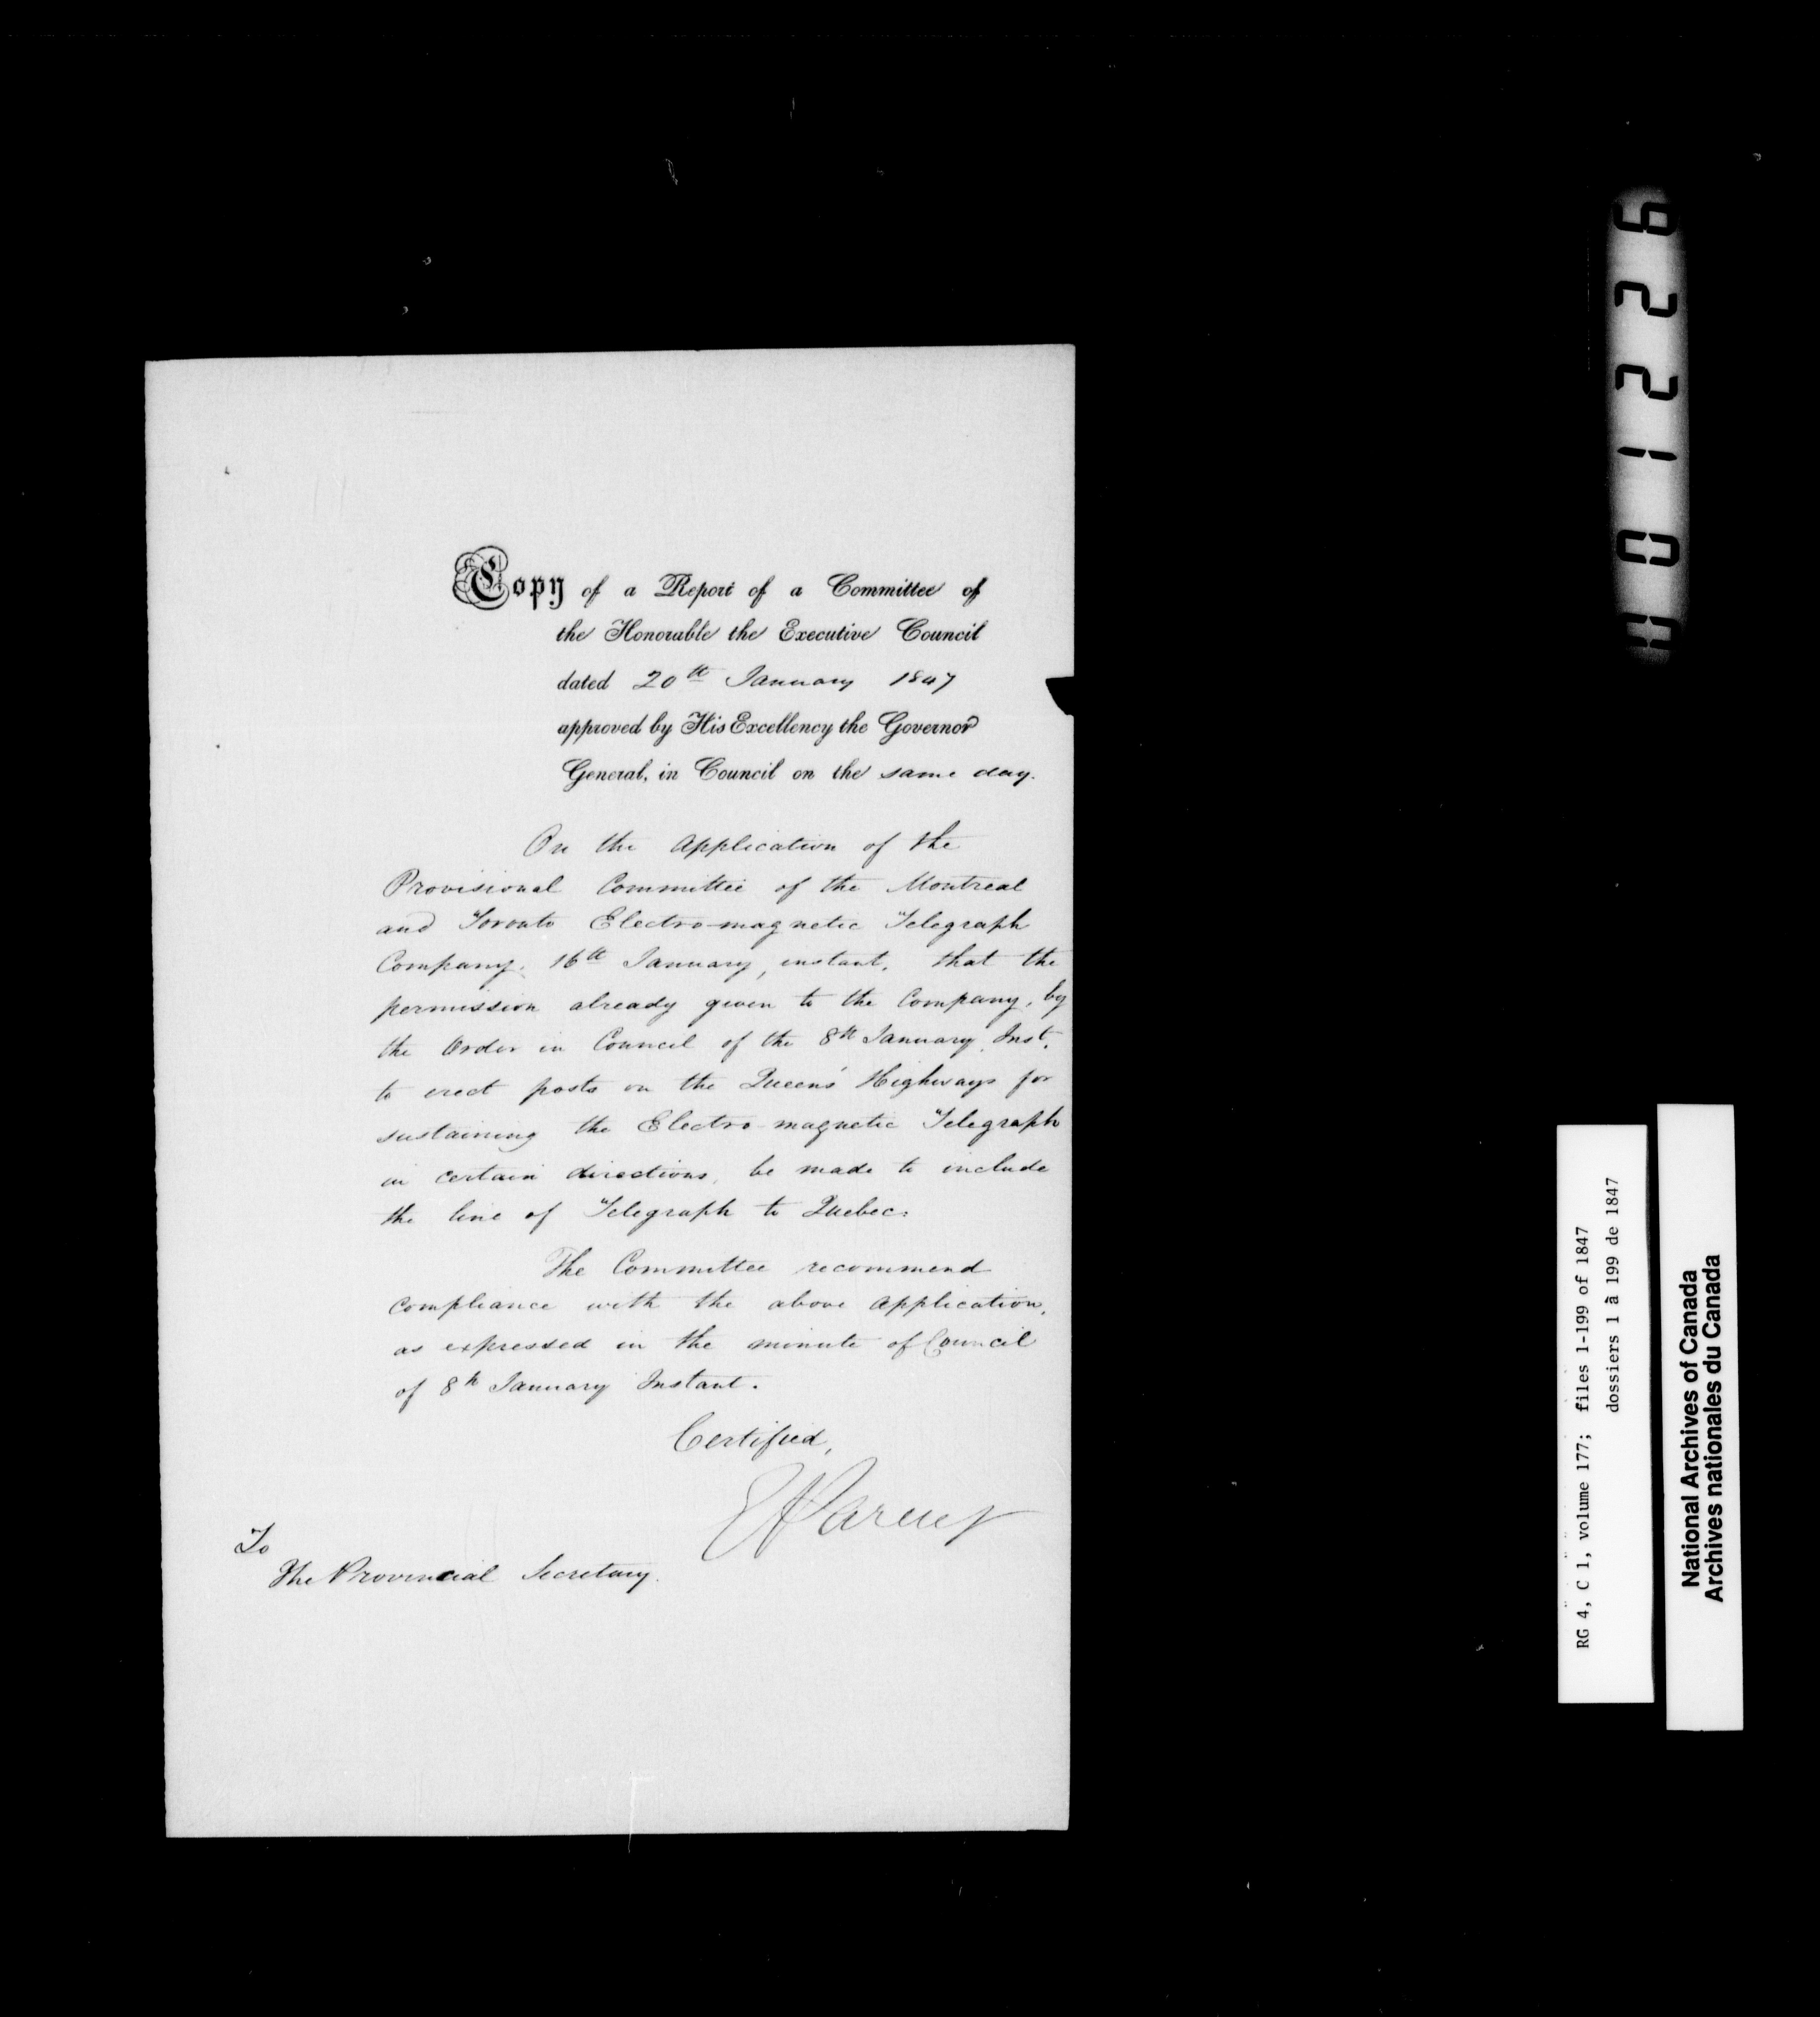 Copy of a Report of a Committee of
the Honorable the Executive Council
dated 20th January 1847
approved by His Excellency the Governor
General, in Council on the same day.
On the Application of the
Provisional Committee of the Montreal
and Toronto Electro-magnetic Telegraph
Company, 16th January, instant, that the
permission already given to the Company, by
the Order in Council of the 8th January Inst.
to erect posts on the Queens' Highways for
sustaining the Electro-magnetic Telegraph
in certain directions, be made to include
the line of Telegraph to Quebec.
The Committee recommend
compliance with the above Application,
as expressed in the minute of Council
of 8th January Instant.
Certified,
E Parent
To
The Provincial Secretary.
RG 4, C 1, volume 177; files 1-199 of 1847
dossiers 1 à 199 de 1847
National Archives of Canada
Archives nationales du Canada